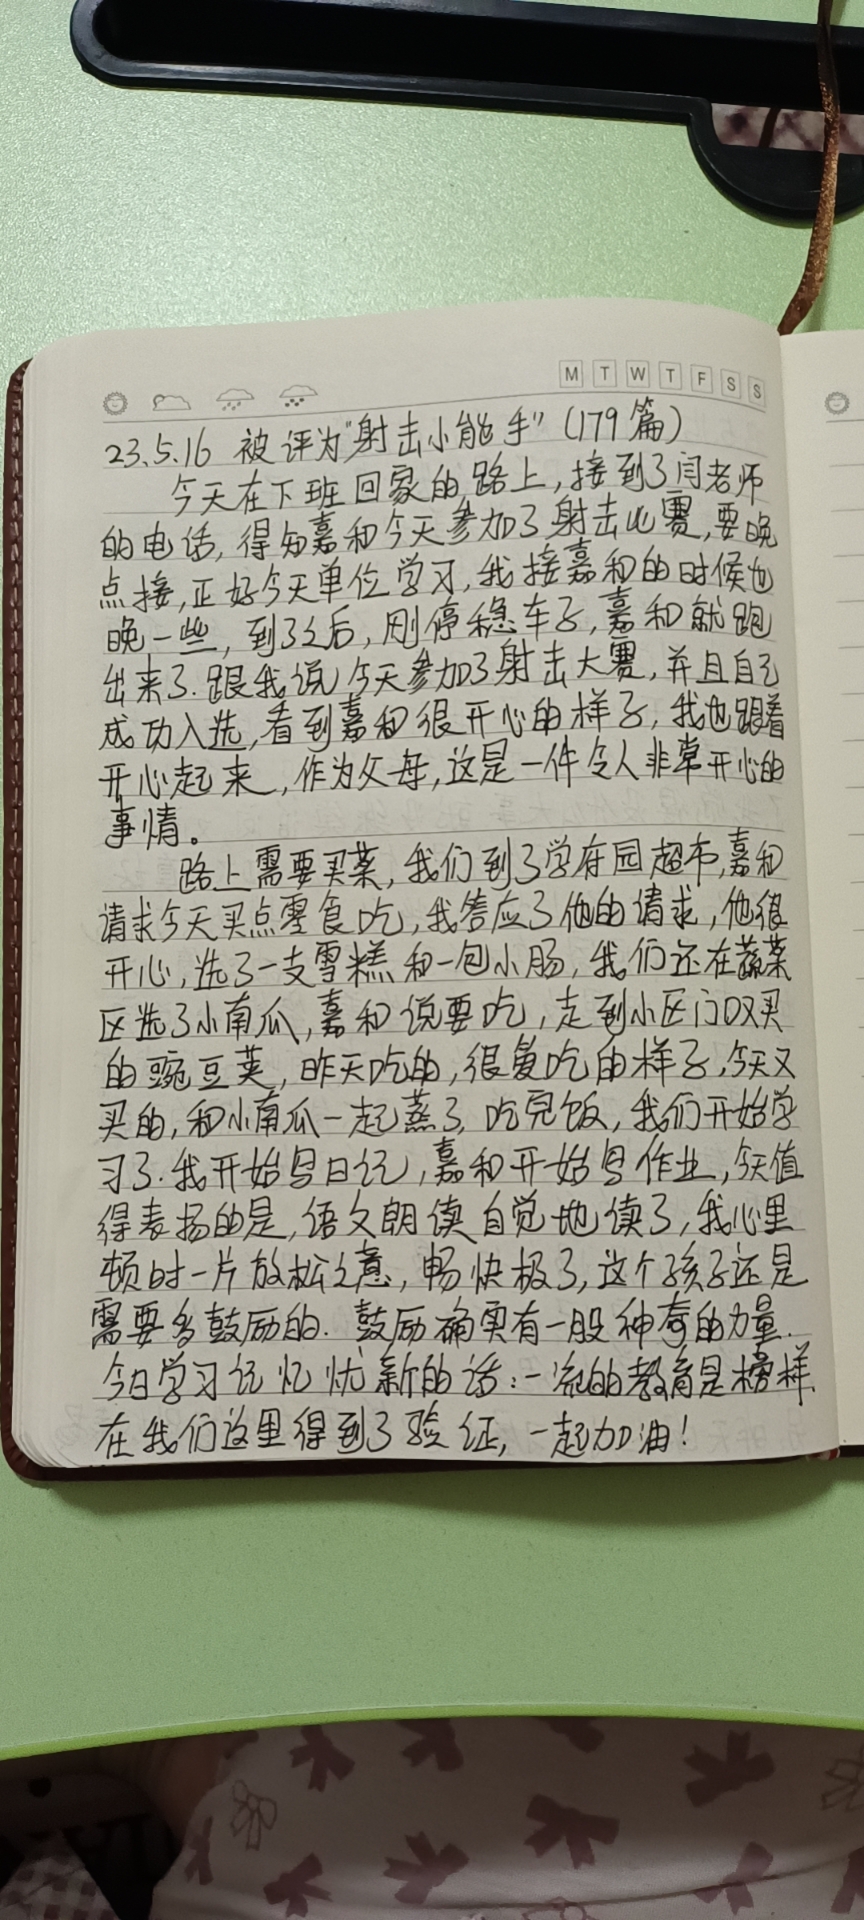 M T W T F S S
23.5.16 被评为“射击小能手”(179篇)
今天在下班回家的路上,接到了闫老师
的电话,得知嘉和今天参加了射击比赛,要晚
点接,正好今天单位学习,我接嘉和的时候也
晚一些,到了之后,刚停稳车子,嘉和就跑
出来了.跟我说今天参加了射击大赛,并且自己
成功入选,看到嘉和很开心的样子,我也跟着
开心起来,作为父母,这是一件令人非常开心的
事情。
路上需要买菜,我们到了学府园超市,嘉和
请求今天买点零食吃,我答应了他的请求,他很
开心,选了一支雪糕和一包小肠,我们还在蔬菜
区选了小南瓜,嘉和说要吃,走到小区门口又买
的豌豆荚,昨天吃的,很爱吃的样子,今天又
买的,和小南瓜一起蒸了,吃完饭,我们开始学
习了.我开始写日记,嘉和开始写作业,今天值
得表扬的是,语文朗读自觉地读了,我心里
顿时一片放松之意,畅快极了,这个孩子还是
需要多鼓励的.鼓励确实有一股神奇的力量.
今日学习记忆犹新的话:一流的教育是榜样.
在我们这里得到了验证,一起加油!